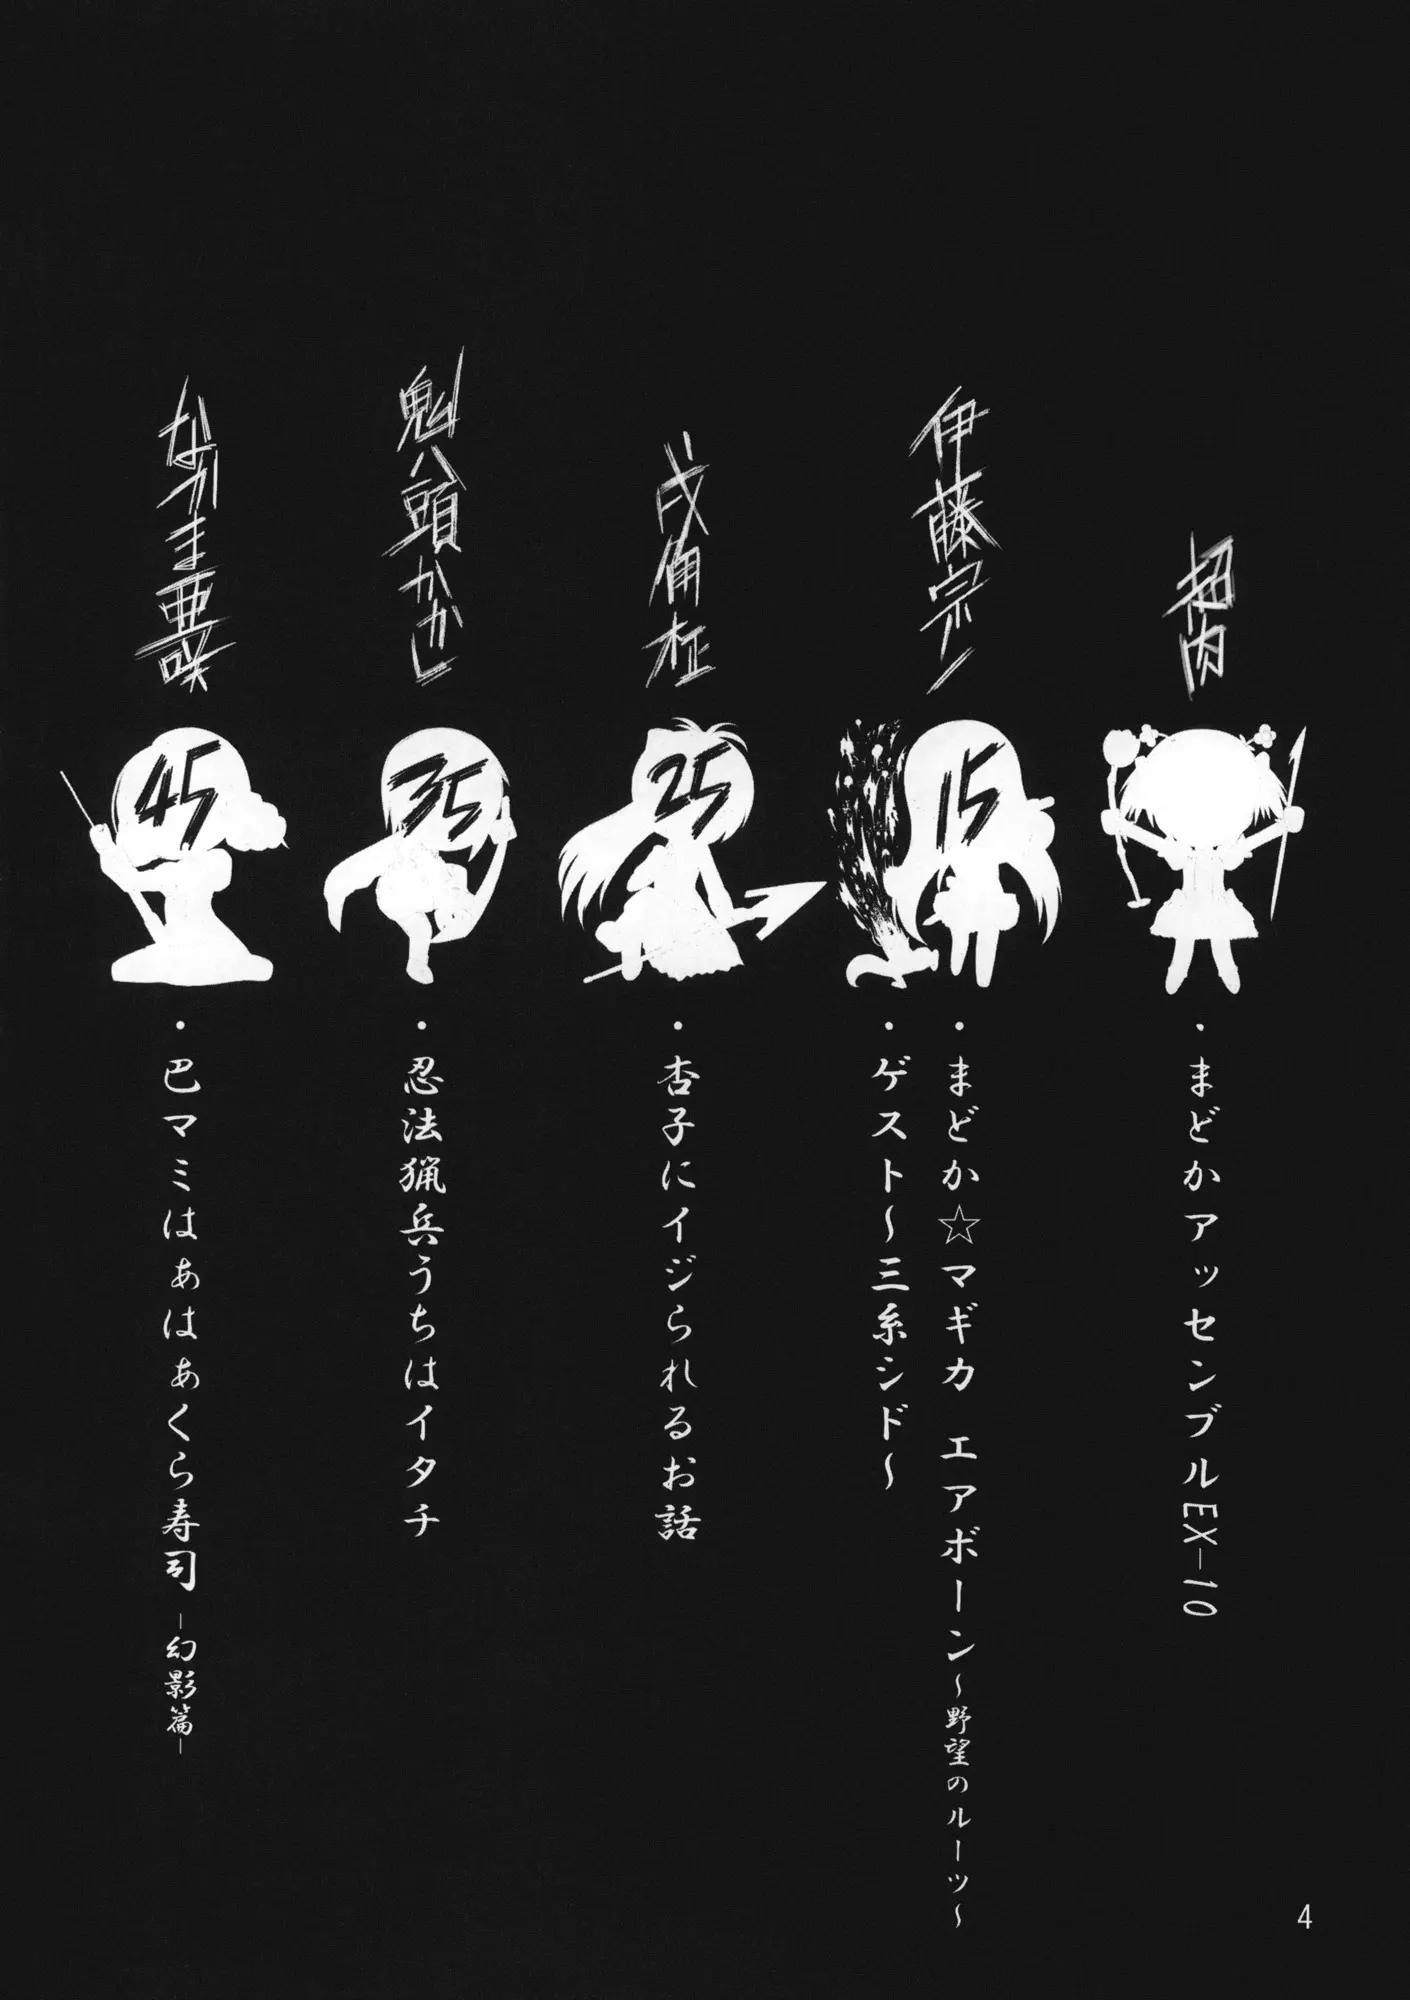 招肉
・まどかアッセンブルEX-10
伊藤宗一
15
・まどか☆マギカ エアボーン～野望のルーツ～
・ゲスト～三糸シド～
25
・杏子にイジられるお話
魁八頭かかし
35
・忍法猟兵うちはイタチ
なかま亜咲
45
・巴マミはぁはぁはぁくら寿司 -幻影篇-
4